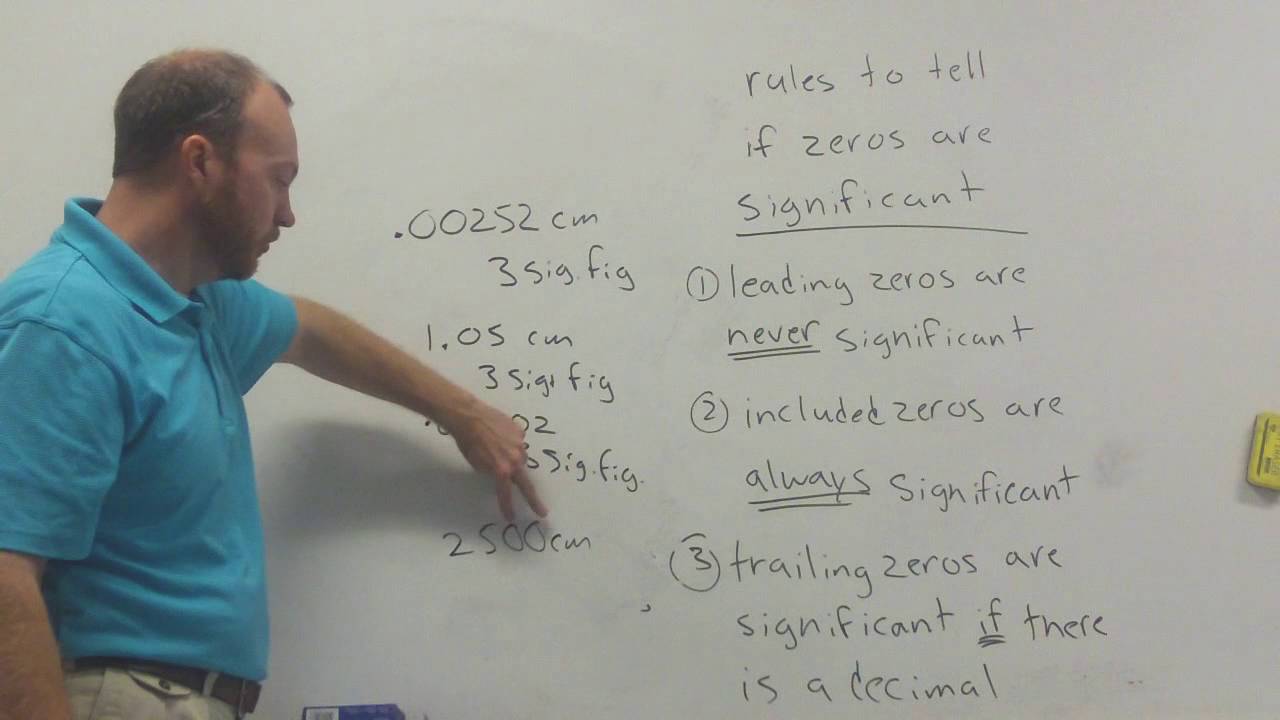 .00252 cm
3 sig. fig
1.05 cm
3 sig. fig
02
3 sig. fig.
2500cm
rules to tell
if zeros are
significant
① leading zeros are
never significant
② included zeros are
always significant
③ trailing zeros are
significant if there
is a decimal